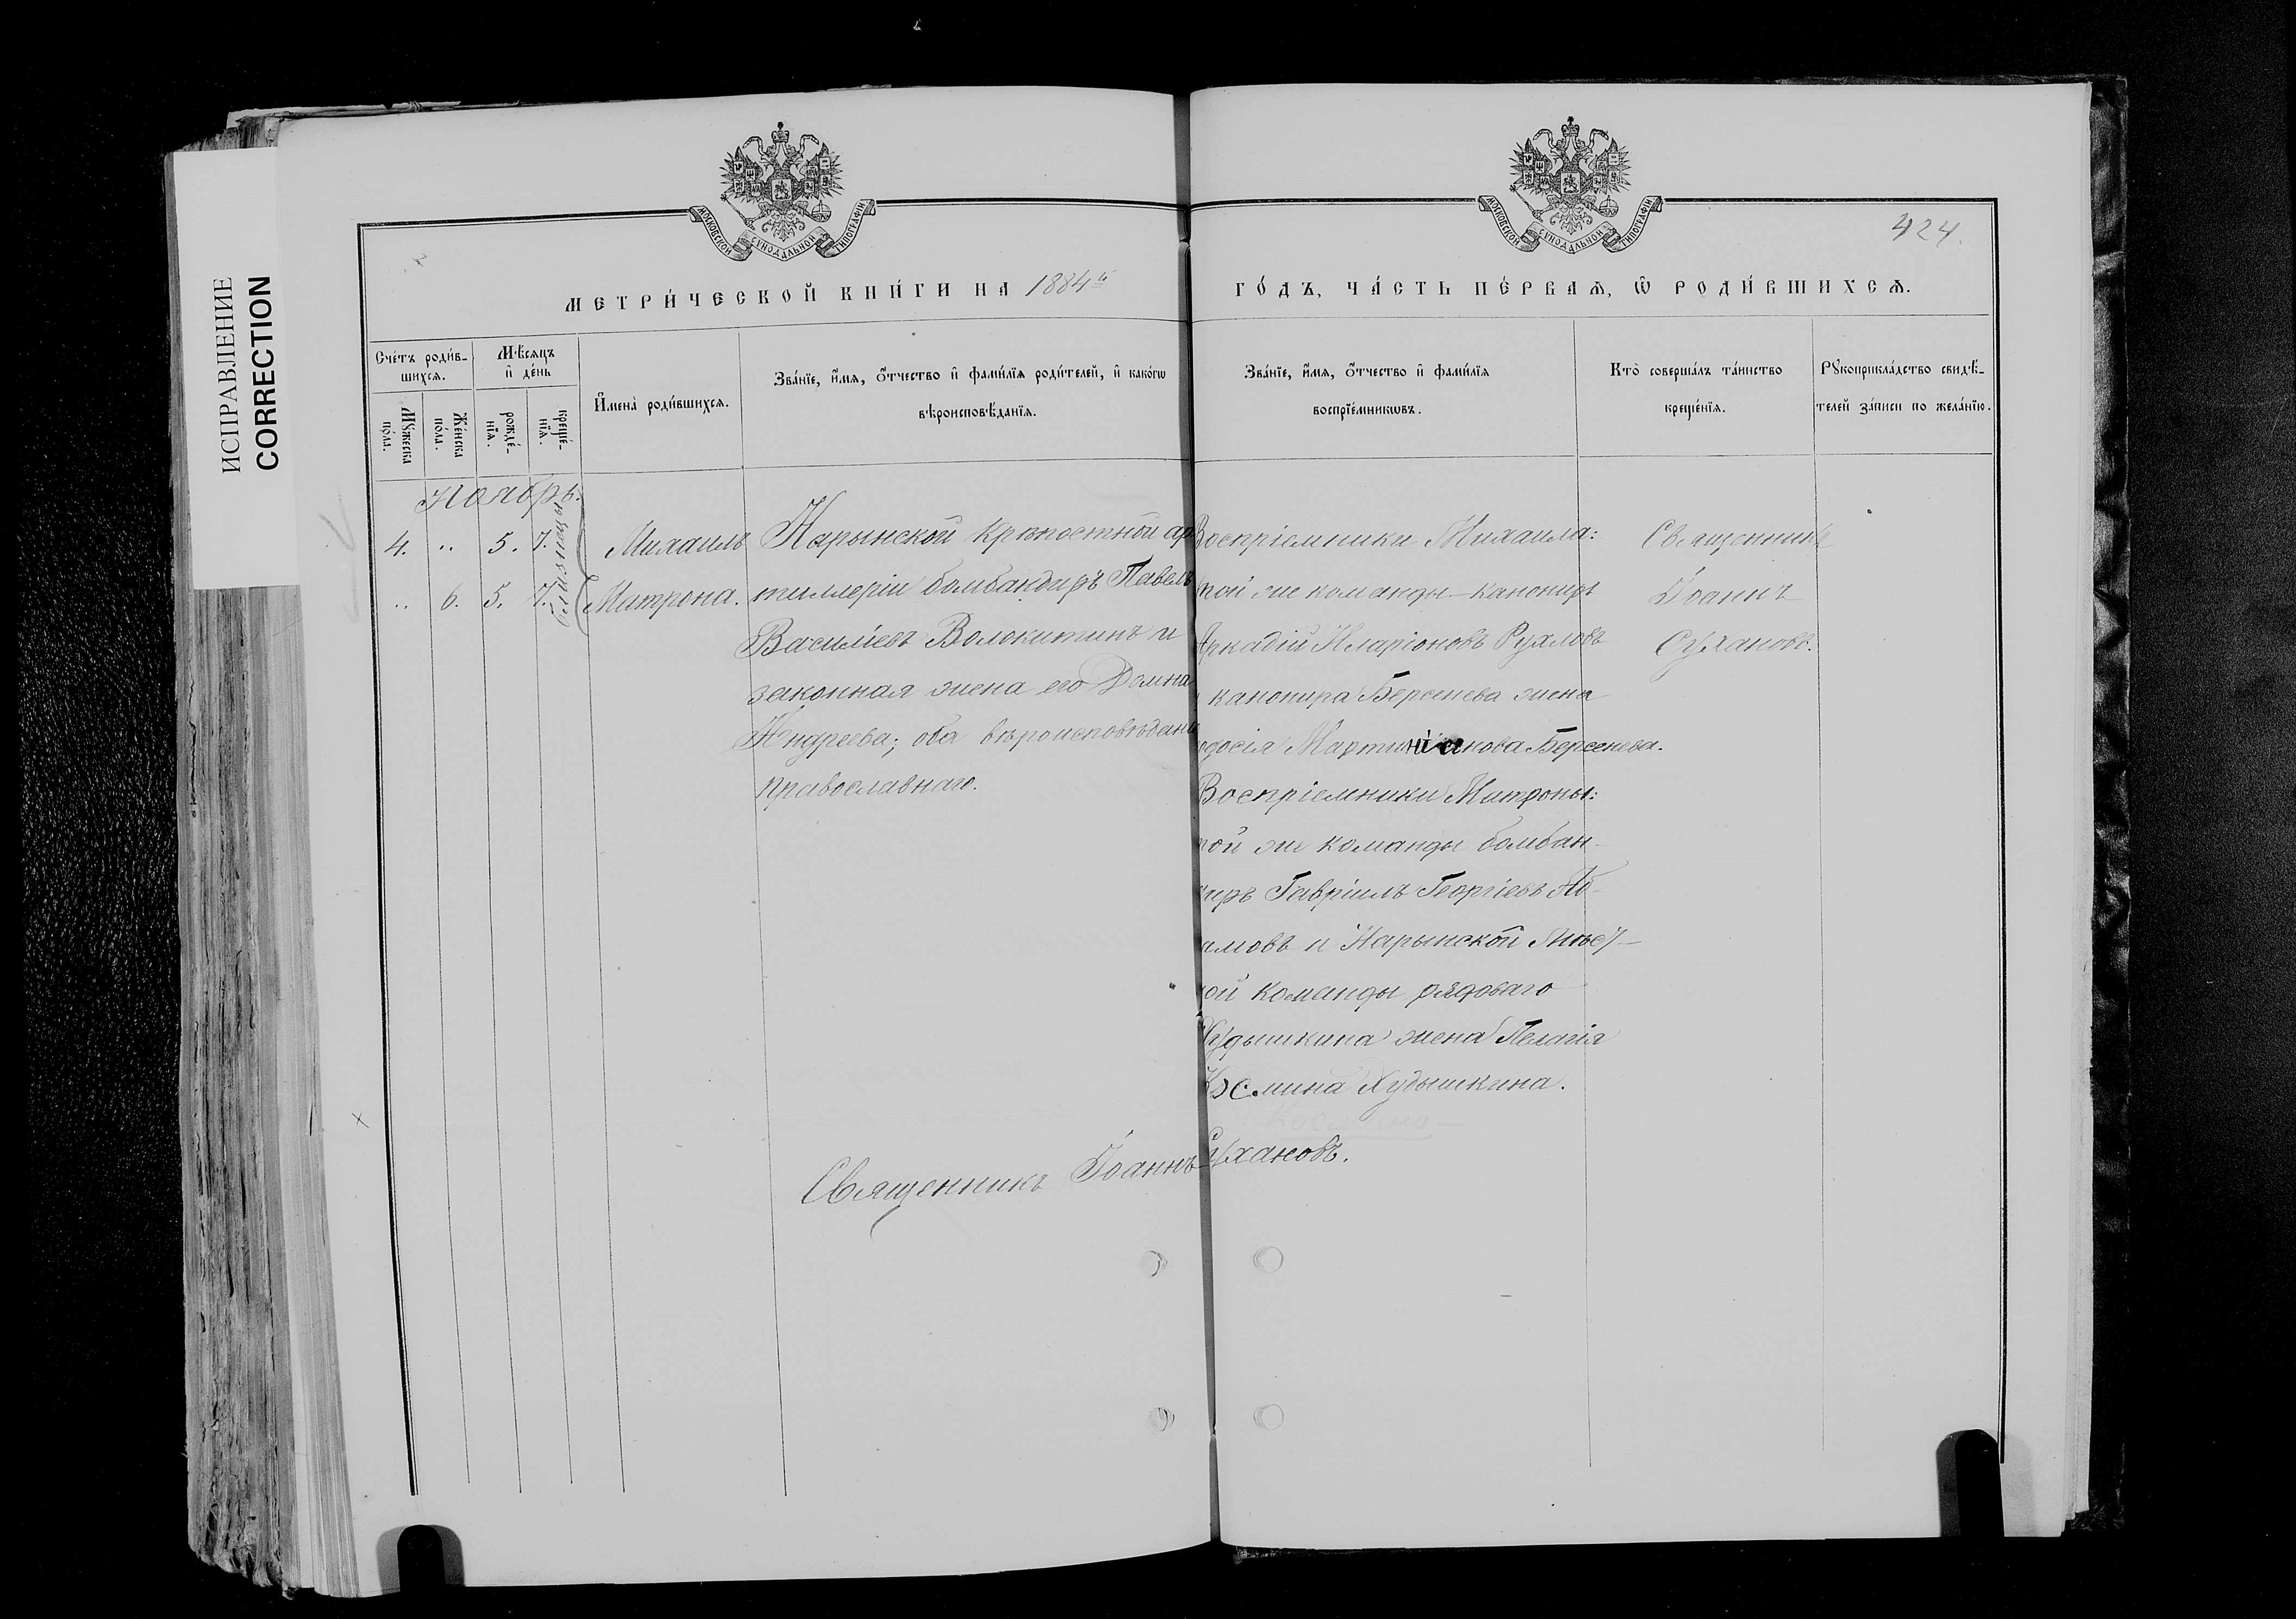 ИСПРАВЛЕНИЕ
CORRECTION
МОСКОВСКОЙ СѴНОДАЛЬНОЙ ТИПОГРАФІИ
МОСКОВСКОЙ СѴНОДАЛЬНОЙ ТИПОГРАФІИ
424.
МЕТРИ́ЧЕСКОЙ КНИ́ГИ НА 1884й
ГО́ДЪ, ЧА́СТЬ ПЕ́РВАѦ, Ѡ҆ РОДИ́ВШИХСѦ.
Сче́тъ роди́в-
шихсѧ.
Мꙋ́жеска по́ла.
Же́нска по́ла.
Мѣ́сѧцъ
и҆ де́нь
рожде́-
нїѧ.
креще́-
нїѧ.
И҆мена̀ роди́вшихсѧ.
Зва́нїе, и҆́мѧ, ѻ҆́тчество и҆ фамѝлїѧ роди́телей, и҆ како́гѡ
вѣроисповѣ́данїѧ.
Зва́нїе, и҆́мѧ, ѻ҆́тчество и҆ фами́лїѧ
воспрїе́мникѡвъ.
Кто̀ соверша́лъ та́инство
креще́нїѧ.
Рꙋкоприкла́дство свидѣ́-
телей за́писи по жела́нїю.
Ноябрь.
4. " 5. 7. Михаилъ
" 6. 5. 7. Матрона.
близнецы
Нарынской крѣпостной ар
тиллеріи бомбандиръ Павелъ
Васильевъ Волокитинъ и
законная жена его Домна
Андреева; оба вѣроисповѣдані
православнаго.
Воспріемники Михаила:
той же команды канониръ
Аркадій Иларіоновъ Рухловъ
канонира Берсенева жена
одосія Мартиніанова Берсенева.
Воспріемники Матроны:
той же команды бомбан-
иръ Гавріилъ Георгіевъ Аб-
амовъ и Нарынской Мѣст-
ой команды рядоваго
Худышкина жена Пелагія
Космина Худышкина.
Священникъ
Іоаннъ
Сухановъ.
Священникъ Іоаннъ Сухановъ.